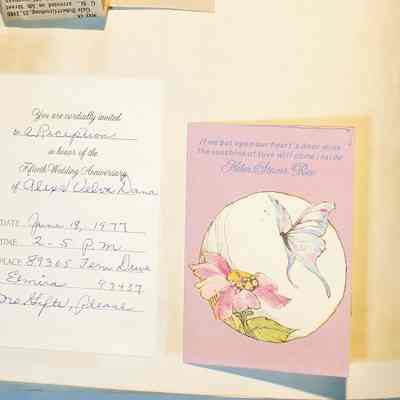 Gale Robert
G. St.
arrested on 5th Street
You are cordially invited
to a Reception
in honor of the
Fiftieth Wedding Anniversary
of Alex & Velva Dana
DATE June 18, 1977
TIME 2 - 5 P.M.
PLACE 89365 Fern Drive
Elmira 97437
No Gifts, Please
If we but open our heart's door wide
The sunshine of love will come inside
Helen Steiner Rice